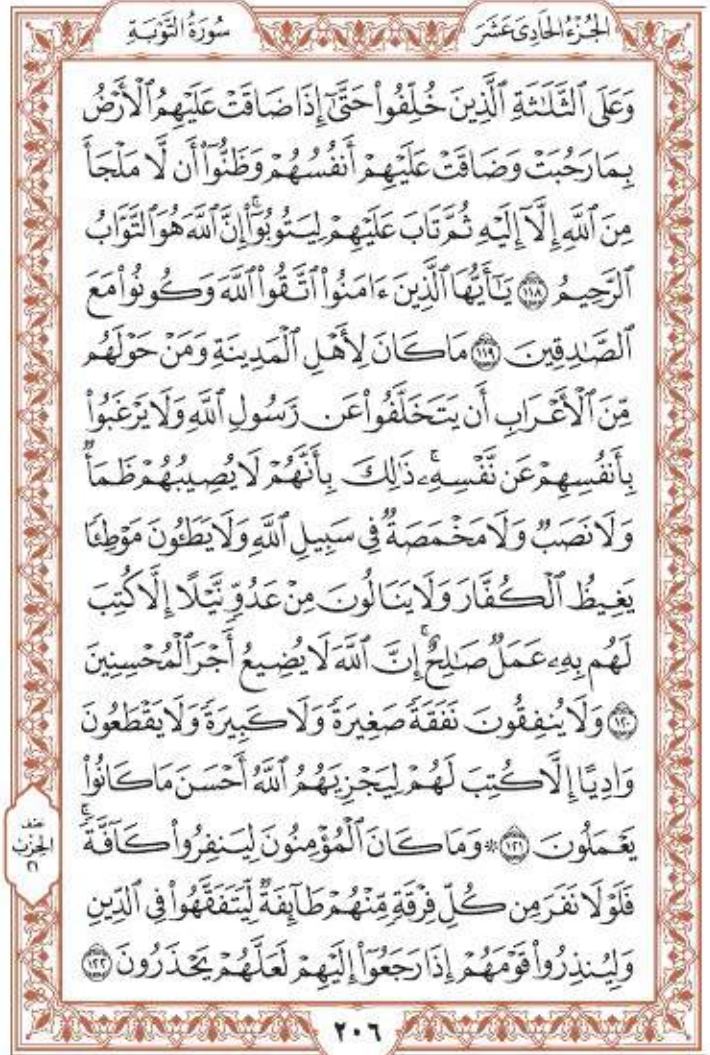 الجُزْءُ الحَادِي عَشَرَ
سُورَةُ التَّوْبَةِ
وَعَلَى ٱلثَّلَٰثَةِ ٱلَّذِينَ خُلِّفُوا۟ حَتَّىٰٓ إِذَا ضَاقَتْ عَلَيْهِمُ ٱلْأَرْضُ
بِمَا رَحُبَتْ وَضَاقَتْ عَلَيْهِمْ أَنفُسُهُمْ وَظَنُّوٓا۟ أَن لَّا مَلْجَأَ
مِنَ ٱللَّهِ إِلَّآ إِلَيْهِ ثُمَّ تَابَ عَلَيْهِمْ لِيَتُوبُوٓا۟ ۚ إِنَّ ٱللَّهَ هُوَ ٱلتَّوَّابُ
ٱلرَّحِيمُ ١١٨ يَٰٓأَيُّهَا ٱلَّذِينَ ءَامَنُوا۟ ٱتَّقُوا۟ ٱللَّهَ وَكُونُوا۟ مَعَ
ٱلصَّٰدِقِينَ ١١٩ مَا كَانَ لِأَهْلِ ٱلْمَدِينَةِ وَمَنْ حَوْلَهُم
مِّنَ ٱلْأَعْرَابِ أَن يَتَخَلَّفُوا۟ عَن رَّسُولِ ٱللَّهِ وَلَا يَرْغَبُوا۟
بِأَنفُسِهِمْ عَن نَّفْسِهِۦ ۚ ذَٰلِكَ بِأَنَّهُمْ لَا يُصِيبُهُمْ ظَمَأٌ
وَلَا نَصَبٌ وَلَا مَخْمَصَةٌ فِى سَبِيلِ ٱللَّهِ وَلَا يَطَـُٔونَ مَوْطِئًا
يَغِيظُ ٱلْكُفَّارَ وَلَا يَنَالُونَ مِنْ عَدُوٍّ نَّيْلًا إِلَّا كُتِبَ
لَهُم بِهِۦ عَمَلٌ صَٰلِحٌ ۚ إِنَّ ٱللَّهَ لَا يُضِيعُ أَجْرَ ٱلْمُحْسِنِينَ
١٢٠ وَلَا يُنفِقُونَ نَفَقَةً صَغِيرَةً وَلَا كَبِيرَةً وَلَا يَقْطَعُونَ
وَادِيًا إِلَّا كُتِبَ لَهُمْ لِيَجْزِيَهُمُ ٱللَّهُ أَحْسَنَ مَا كَانُوا۟
يَعْمَلُونَ ١٢١ ۞ وَمَا كَانَ ٱلْمُؤْمِنُونَ لِيَنفِرُوا۟ كَآفَّةً ۚ
فَلَوْلَا نَفَرَ مِن كُلِّ فِرْقَةٍ مِّنْهُمْ طَآئِفَةٌ لِّيَتَفَقَّهُوا۟ فِى ٱلدِّينِ
وَلِيُنذِرُوا۟ قَوْمَهُمْ إِذَا رَجَعُوٓا۟ إِلَيْهِمْ لَعَلَّهُمْ يَحْذَرُونَ ١٢٢
الحِزْبُ
٢١
٢٠٦